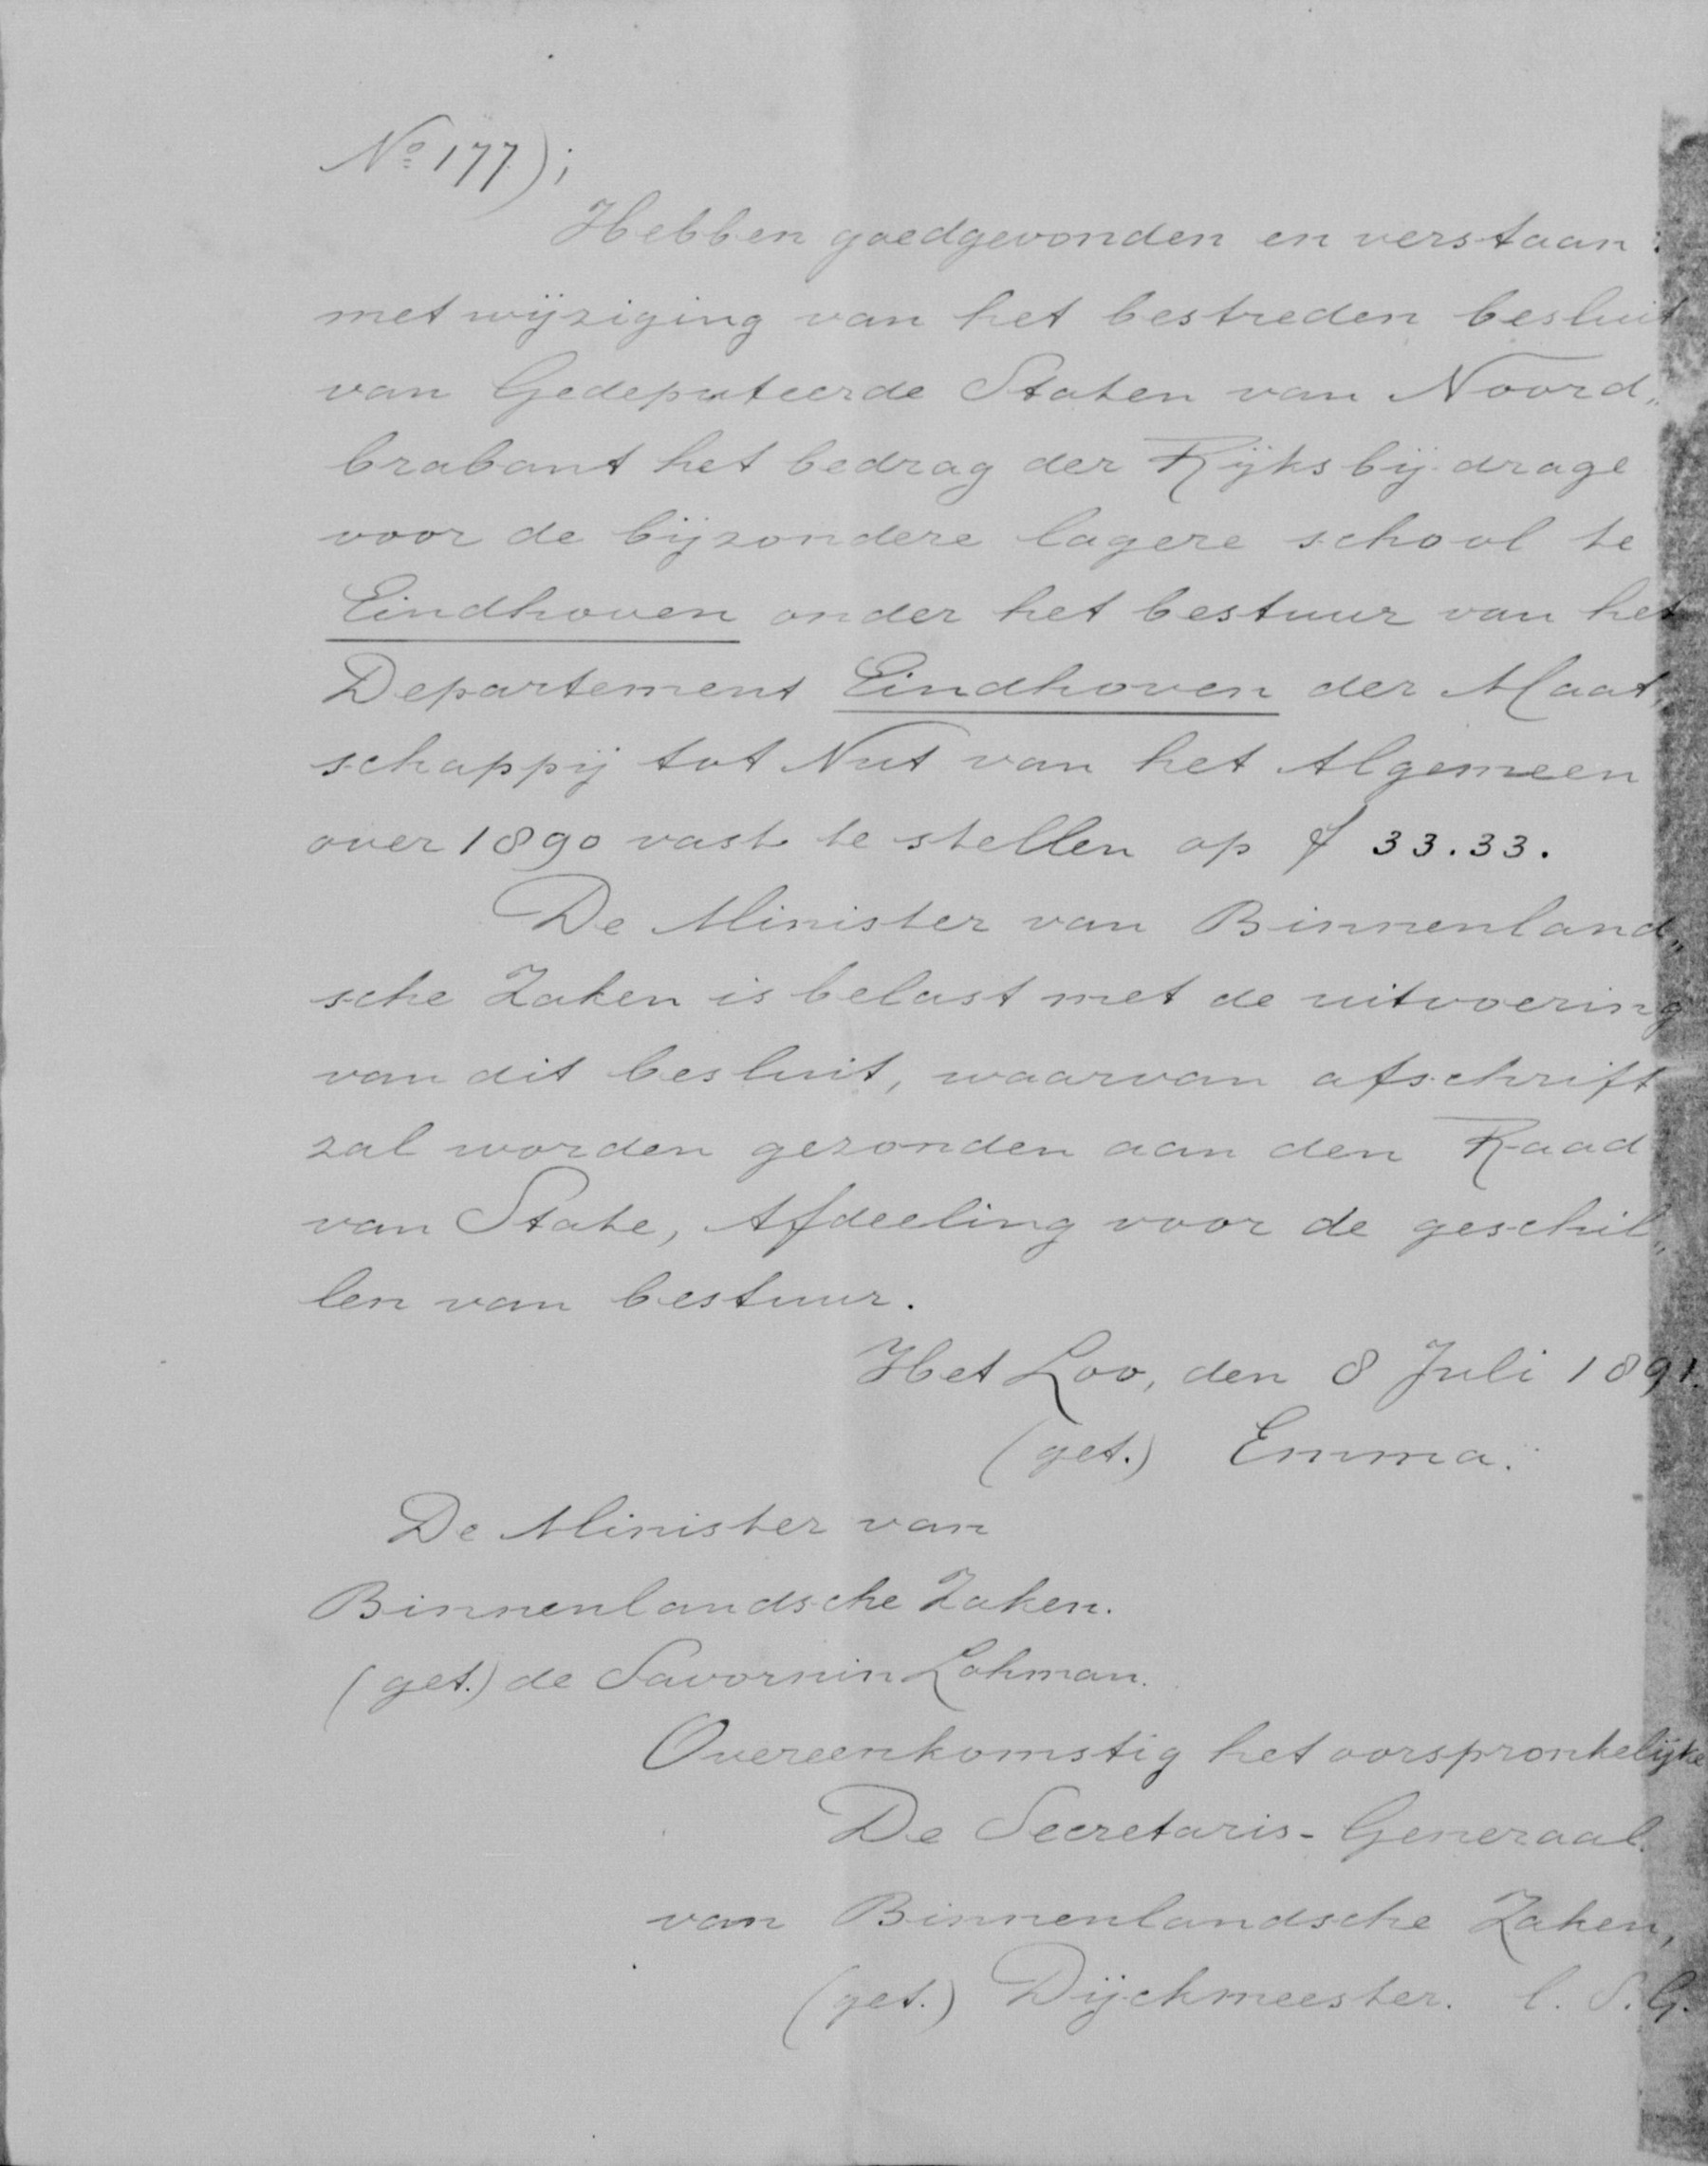 No 177);
Hebben goedgevonden en verstaan:
met wijziging van het bestreden besluit
van Gedeputeerde Staten van Noord„
brabant het bedrag der Rijksbijdrage
voor de bijzondere lagere school te
Eindhoven onder het bestuur van het
Departement Eindhoven der Maat„
schappij tot Nut van het Algemeen
over 1890 vast te stellen op f 33.33.
De Minister van Binnenland„
sche Zaken is belast met de uitvoering
van dit besluit, waarvan afschrift
zal worden gezonden aan den Raad
van State, Afdeeling voor de geschil„
len van bestuur.
Het Loo, den 8 Juli 1891.
(get.) Emma.
De Minister van
Binnenlandsche Zaken.
(get.) de Savornin Lohman.
Overeenkomstig het oorspronkelijke
De Secretaris-Generaal
van Binnenlandsche Zaken,
(get.) Dijckmeester. l. S.G.